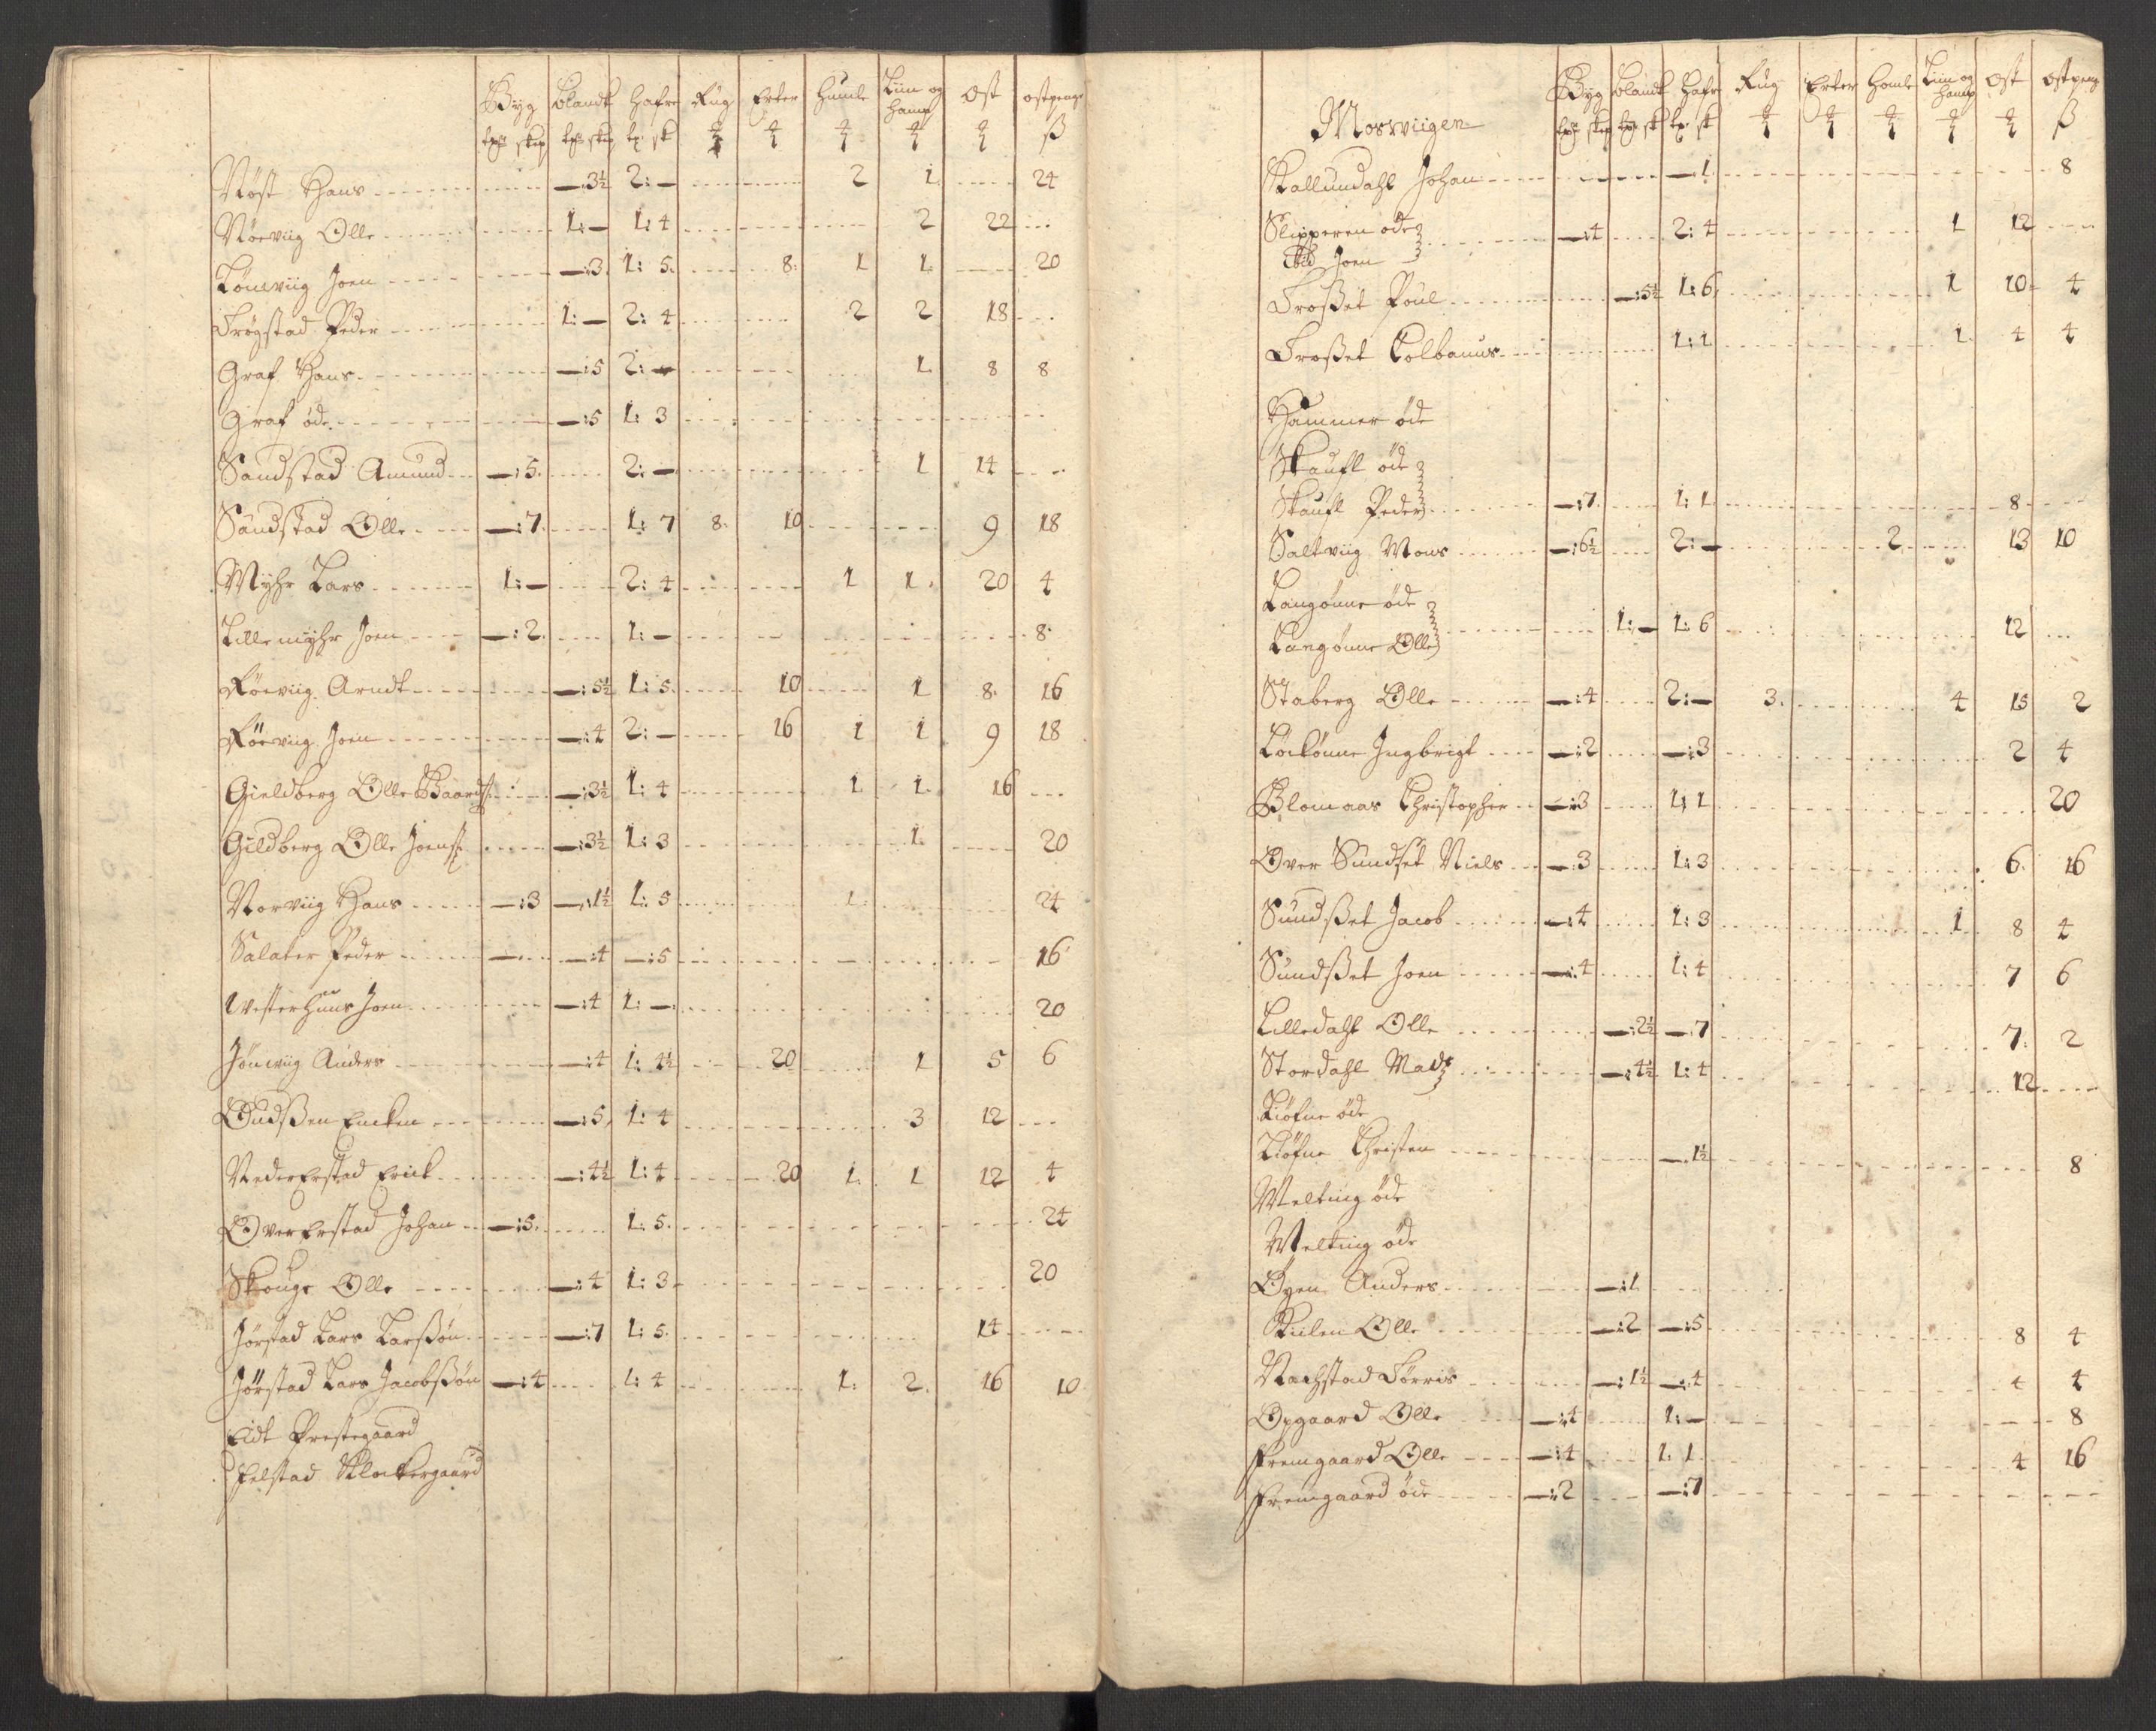 Byg Blandt hafre Rug Erter humle Liin og hamp Ost ostpenge
Røst Hans —:3½ 2:— 2 1 24
Nøeviig Olle 1:— 1:4 2 22
Lønviig Joen —:3 1:5 8 1 1 20
Frøgstad Peder 1:— 2:4 2 2 18
Graf Hans —:5 2:— 1 8 8
Graf øde —:5 1:3
Sandstad Amund —:5 2:— 1 14
Sandstad Olle —:7 1:7 8 10 9 18
Myhr Lars 1:— 2:4 1 1 20 4
Lillemyhr Joen —:2 1:— 8
Røeviig Arndt —:5½ 1:5 10 1 8 16
Røeviig Joen —:4 2:— 16 1 1 9 18
Gieldberg Olle Baards. —:3½ 1:4 1 1 16
Gildberg Olle Joens. —:3½ 1:3 1 20
Norviig Hans —:3 —:1½ 1:5 1 24
Salater Peder — —:4 —:5 16
Westerhuus Joen —:4 1:— 20
Jønviig Anders —:4 1:4½ 20 1 5 6
Oudßen Encken —:5 1:4 3 12
Neder Erstad Erick —:4½ 1:4 20 1 1 12 4
Over Erstad Johan —:5 1:5 24
Skouge Olle —:4 1:3 20
Jørstad Lars Larßøn —:7 1:5 14
Jørstad Lars Jacobßøn —:4 1:4 1 2 16 10
Eidt Prestegaard
Felstad Klockergaard
Mosviigen Byg Blandt hafr Rug Erter Homle Liin og hamp Ost Ostpeng
Kallundahl Johan —:1 8
Slipperen øde
Ibid Joen —:4 2:4 1 12
Froßet Poul —:5½ 1:6 1 10 4
Froßet Colbanus 1:1 1 4 4
Hammer øde
Skaufl øde
Skaufl Peder —:7 1:1 8
Saltviig Mons —:6½ 2:— 2 13 10
Langønne øde
Langønne Olle 1:— 1:6 12
Staberg Olle —:4 2:— 3 4 15 2
Løckønne Ingbrigt —:2 —:3 2 4
Blomaas Christopher —:3 1:1 20
Over Sundset Niels —:3 1:3 6 16
Sundßet Jacob —:4 1:3 1 8 4
Sundßet Joen —:4 1:4 7 6
Lilledahl Olle —:2½ —:7 7 2
Stordahl Mads —:4½ 1:4 12
Liøfne øde
Liøfne Christen —:1½ 8
Melting øde
Melting øde
Øyen Anders —:1
Kiilen Olle —:2 —:5 8 4
Rachstad Torris —:1½ —:4 4 4
Opgaard Olle —:4 1:— 8
Fremgaard Olle —:4 1:1 4 16
Fremgaard øde —:2 —:7